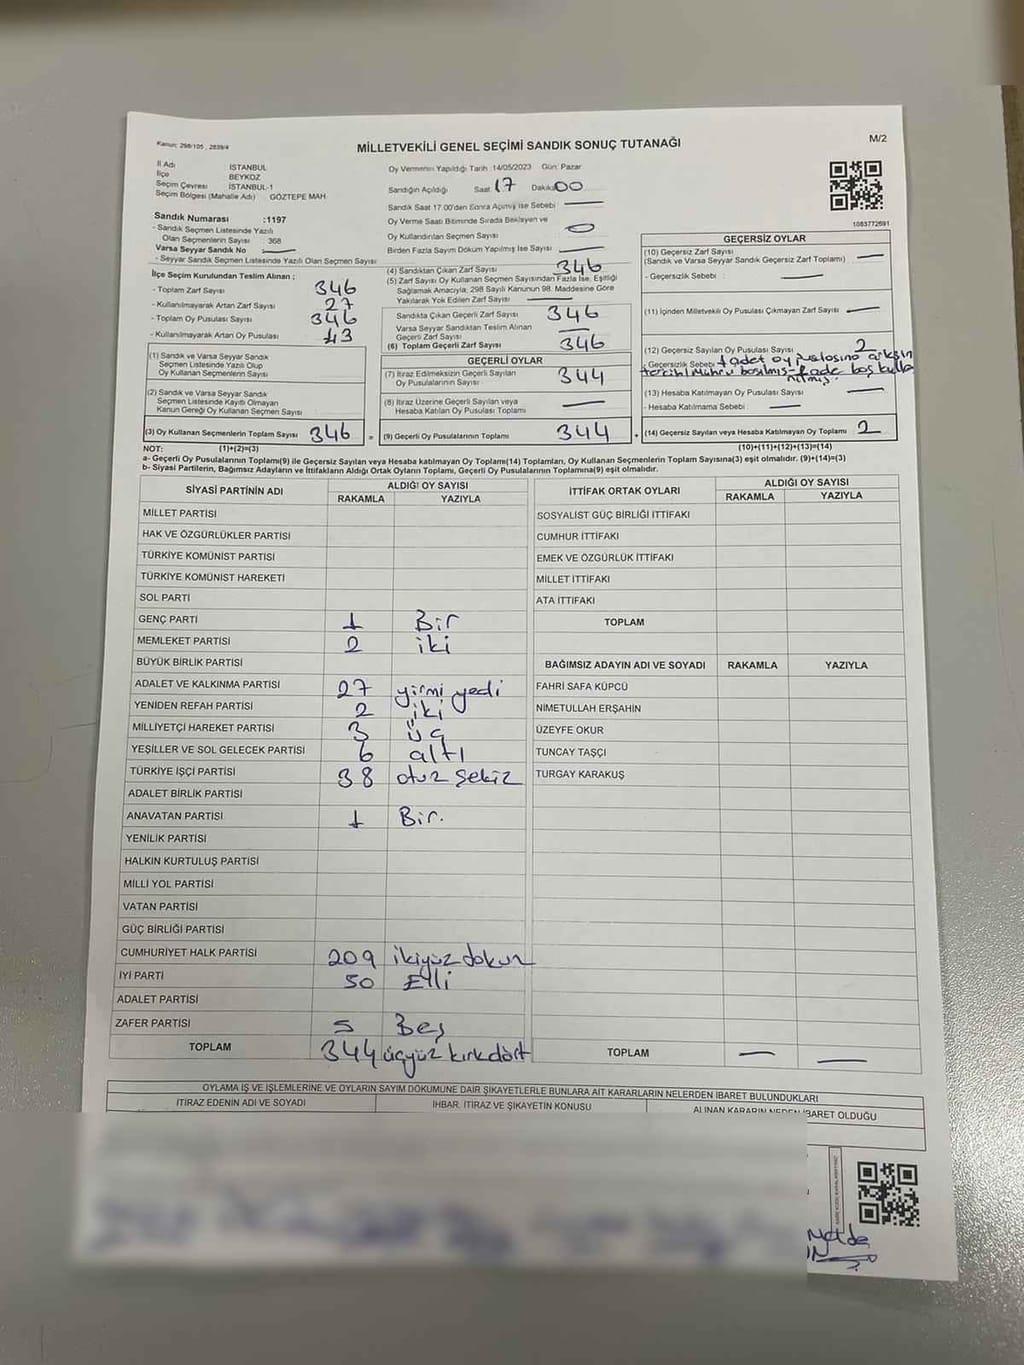 Kanun: 298/105, 2839/4
MİLLETVEKİLİ GENEL SEÇİMİ SANDIK SONUÇ TUTANAĞI
M/2
İl Adı İSTANBUL
İlçe BEYKOZ
Seçim Çevresi İSTANBUL-1
Seçim Bölgesi (Mahalle Adı) GÖZTEPE MAH
Sandık Numarası :1197
- Sandık Seçmen Listesinde Yazılı
Olan Seçmenlerin Sayısı 368
Varsa Seyyar Sandık No
- Seyyar Sandık Seçmen Listesinde Yazılı Olan Seçmen Sayısı
İlçe Seçim Kurulundan Teslim Alınan ;
- Toplam Zarf Sayısı 346
- Kullanılmayarak Artan Zarf Sayısı 27
- Toplam Oy Pusulası Sayısı 346
- Kullanılmayarak Artan Oy Pusulası 43
(1) Sandık ve Varsa Seyyar Sandık
Seçmen Listesinde Yazılı Olup
Oy Kullanan Seçmenlerin Sayısı
(2) Sandık ve Varsa Seyyar Sandık
Seçmen Listesinde Kayıtlı Olmayan
Kanun Gereği Oy Kullanan Seçmen Sayısı
(3) Oy Kullanan Seçmenlerin Toplam Sayısı 346 =
Oy Vermenin Yapıldığı Tarih :14/05/2023 Gün: Pazar
Sandığın Açıldığı Saat 17 Dakika 00
Sandık Saat 17.00'den Sonra Açılmış ise Sebebi
Oy Verme Saati Bitiminde Sırada Bekleyen ve
Oy Kullandırılan Seçmen Sayısı 0
Birden Fazla Sayım Döküm Yapılmış İse Sayısı
(4) Sandıktan Çıkan Zarf Sayısı 346
(5) Zarf Sayısı Oy Kullanan Seçmen Sayısından Fazla İse, Eşitliği
Sağlamak Amacıyla, 298 Sayılı Kanunun 98. Maddesine Göre
Yakılarak Yok Edilen Zarf Sayısı
Sandıkta Çıkan Geçerli Zarf Sayısı 346
Varsa Seyyar Sandıktan Teslim Alınan
Geçerli Zarf Sayısı
(6) Toplam Geçerli Zarf Sayısı 346
GEÇERLİ OYLAR
(7) İtiraz Edilmeksizin Geçerli Sayılan
Oy Pusulalarının Sayısı 344
(8) İtiraz Üzerine Geçerli Sayılan veya
Hesaba Katılan Oy Pusulası Toplamı
(9) Geçerli Oy Pusulalarının Toplamı 344 +
1083772691
GEÇERSİZ OYLAR
(10) Geçersiz Zarf Sayısı
(Sandık ve Varsa Seyyar Sandık Geçersiz Zarf Toplamı)
- Geçersizlik Sebebi :
(11) İçinden Milletvekili Oy Pusulası Çıkmayan Zarf Sayısı
(12) Geçersiz Sayılan Oy Pusulası Sayısı 2
- Geçersizlik Sebebi 1 adet oy puslasına
tercih mührü basılmış boş kulla
nılmış
(13) Hesaba Katılmayan Oy Pusulası Sayısı
- Hesaba Katılmama Sebebi :
(14) Geçersiz Sayılan veya Hesaba Katılmayan Oy Toplamı 2
NOT: (1)+(2)=(3)
(10)+(11)+(12)+(13)=(14)
a- Geçerli Oy Pusulalarının Toplamı(9) ile Geçersiz Sayılan veya Hesaba katılmayan Oy Toplamı(14) Toplamları, Oy Kullanan Seçmenlerin Toplam Sayısına(3) eşit olmalıdır. (9)+(14)=(3)
b- Siyasi Partilerin, Bağımsız Adayların ve İttifakların Aldığı Ortak Oyların Toplamı, Geçerli Oy Pusulalarının Toplamına(9) eşit olmalıdır.
SİYASİ PARTİNİN ADI ALDIĞI OY SAYISI
RAKAMLA YAZIYLA
MİLLET PARTİSİ
HAK VE ÖZGÜRLÜKLER PARTİSİ
TÜRKİYE KOMÜNİST PARTİSİ
TÜRKİYE KOMÜNİST HAREKETİ
SOL PARTİ
GENÇ PARTİ 1 Bir
MEMLEKET PARTİSİ 2 iki
BÜYÜK BİRLİK PARTİSİ
ADALET VE KALKINMA PARTİSİ 27 yirmi yedi
YENİDEN REFAH PARTİSİ 2 iki
MİLLİYETÇİ HAREKET PARTİSİ 3 üç
YEŞİLLER VE SOL GELECEK PARTİSİ 6 altı
TÜRKİYE İŞÇİ PARTİSİ 38 otuz sekiz
ADALET BİRLİK PARTİSİ
ANAVATAN PARTİSİ 1 Bir.
YENİLİK PARTİSİ
HALKIN KURTULUŞ PARTİSİ
MİLLİ YOL PARTİSİ
VATAN PARTİSİ
GÜÇ BİRLİĞİ PARTİSİ
CUMHURİYET HALK PARTİSİ 209 ikiyüz dokuz
İYİ PARTİ 50 Elli
ADALET PARTİSİ
ZAFER PARTİSİ 5 Beş
TOPLAM 344 üçyüz kırkdört
İTTİFAK ORTAK OYLARI ALDIĞI OY SAYISI
RAKAMLA YAZIYLA
SOSYALİST GÜÇ BİRLİĞİ İTTİFAKI
CUMHUR İTTİFAKI
EMEK VE ÖZGÜRLÜK İTTİFAKI
MİLLET İTTİFAKI
ATA İTTİFAKI
TOPLAM
BAĞIMSIZ ADAYIN ADI VE SOYADI RAKAMLA YAZIYLA
FAHRİ SAFA KÜPCÜ
NİMETULLAH ERŞAHİN
ÜZEYFE OKUR
TUNCAY TAŞÇI
TURGAY KARAKUŞ
TOPLAM
OYLAMA İŞ VE İŞLEMLERİNE VE OYLARIN SAYIM DÖKÜMÜNE DAİR ŞİKAYETLERLE BUNLARA AİT KARARLARIN NELERDEN İBARET BULUNDUKLARI
İTİRAZ EDENİN ADI VE SOYADI İHBAR, İTİRAZ VE ŞİKAYETİN KONUSU ALINAN KARARIN NEDEN İBARET OLDUĞU